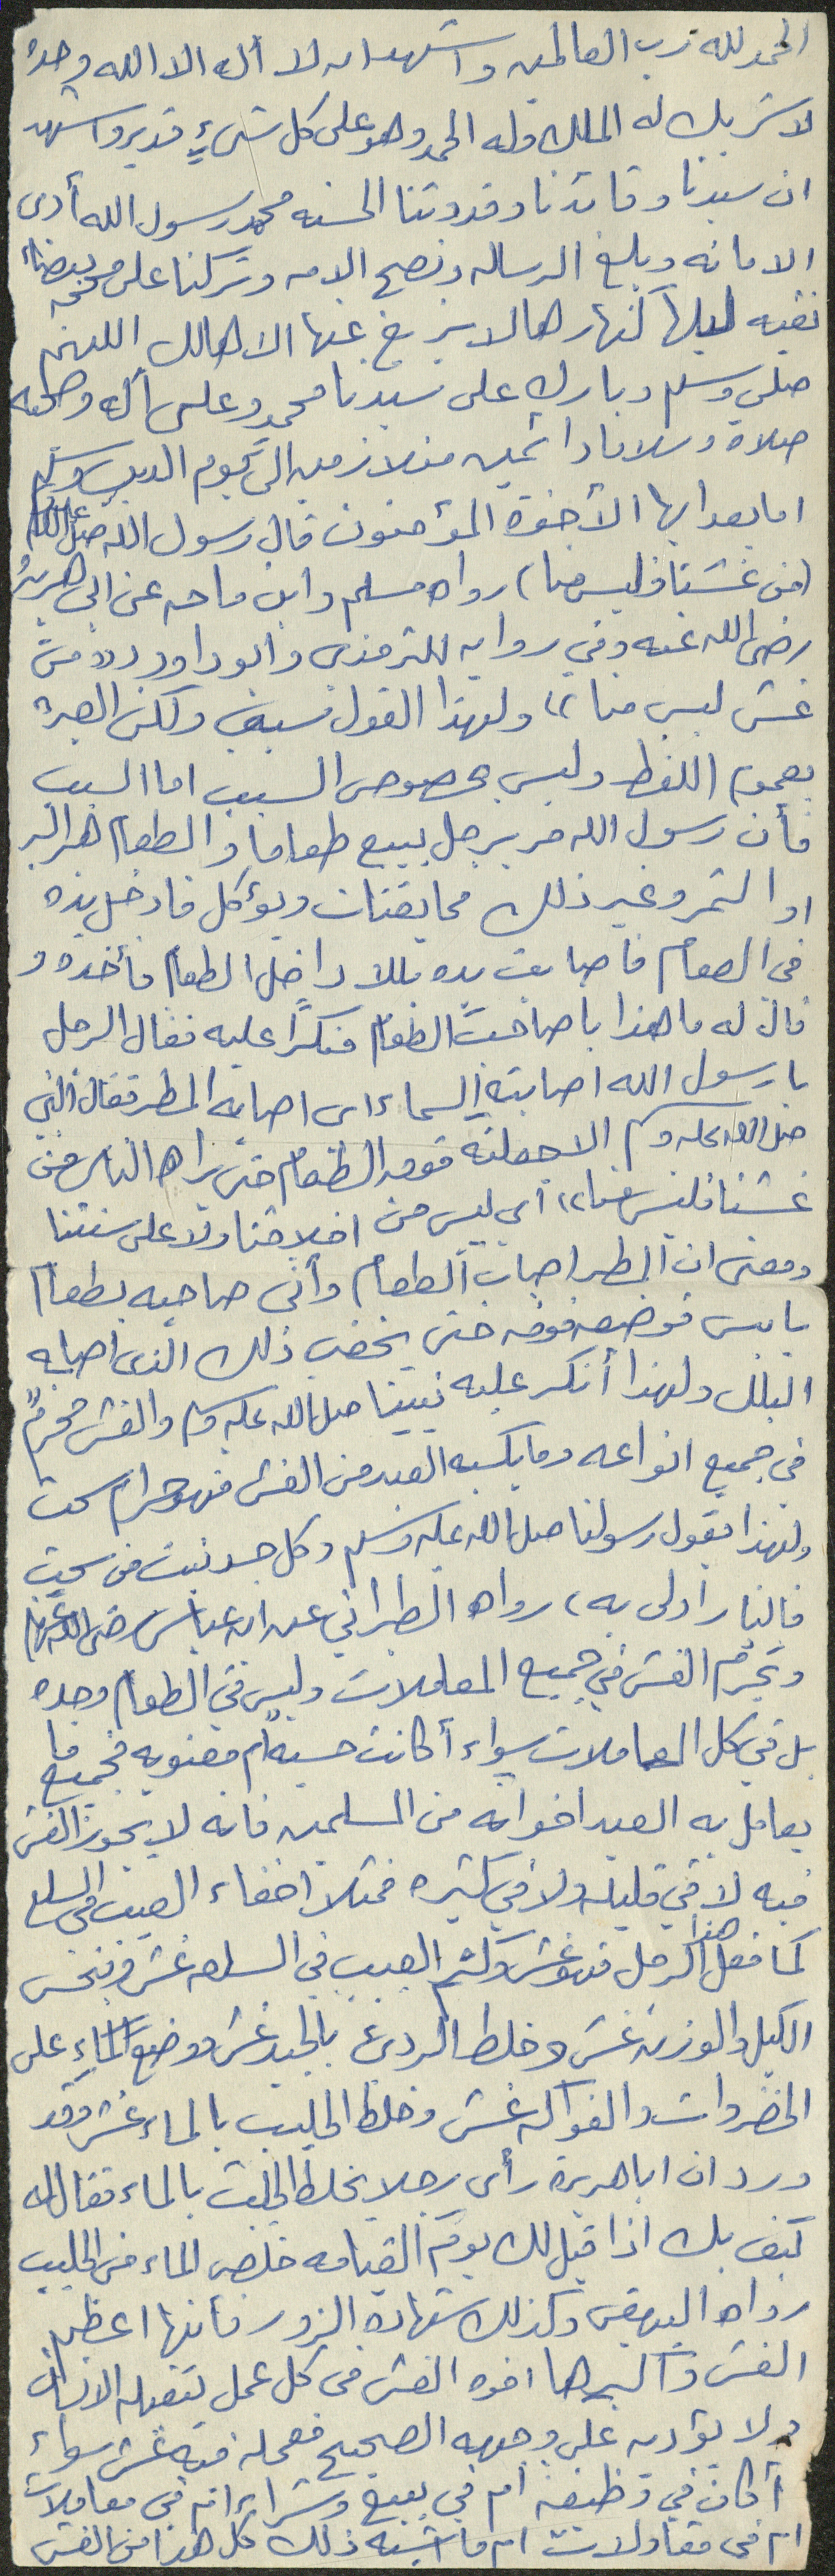 الحمد لله رب العالمين واشهد ان لا أله الا الله وحده
لا شريك له الملك وله الحمد وهو على كل شيءٍ قدير واشهد
ان سيدنا وقائدنا وقدوتنا الحسنه محمد رسول الله أدى
الامانه وبلغ الرساله ونصح الامه وتركنا على محجه بيضاء
نقيه ليلها كنهارها لا يزيغ عنها الا هالك اللهم
صلي وسلم وبارك على سيدنا محمدٍ وعلى أله وصحبه
صلاة وسلاما دائمين متلازمين الى يوم الدين وسلم
اما بعد ايها الأخوة المؤمنون قال رسول الله صلى الله عليه وسلم
(من غشنا فليس منا) رواه مسلم وابن ماجه عن ابي هريرة
رضى الله عنه وفي روايه للترمذى وابو داود ((من
غش ليس منا)) ولهذا القول سبب ولكن العبرة
بعموم اللفظ وليس بخصوص السبب اما السبب
فأن رسول الله مر برجل يبيع طعاما والطعام هو البر
او التمر وغير ذلك مما يقتات ويؤكل فادخل يده
في الطعام فاصابت يده بللا داخل الطعام فأخذه و
قال له ما هذا يا صاحب الطعام منكرًا عليه فقال الرجل
يا رسول الله اصابته السماء اى اصابه المطر فقال النبي
صلى الله عليه وسلم الا جعلته فوق الطعام حتى يراه الناس من
غشنا فليس منا)) أي ليس من اخلاقنا ولا على سنتنا
ومعنى ان المطر اصاب الطعام وأتى صاحبه بطعام
يابس فوضعه فوقه حتى يخفى ذلك الذى اصابه
البلل ولهذا أنكر عليه نبينا صلى الله عليه وسلم والغش محرمٌ
في جميع انواعه وما يكسبه العبد من الغش فهو حرام سحت
ولهذا يقول رسولنا صلى الله عليه وسلم وكل جسد نبت من سحت
فالنار اولى به) رواه الطبراني عن ابن عباس رضى الله عنهما
وتحرم الغش في جميع المعاملات وليس في الطعام وحده
بل في كل المعاملات سواء أكانت حسيه ام معنويه فجميع ما
يعامل به العبد اخوانه من المسلمين فانه لا يجوز الغش
فيه لا في قليله ولا في كثيره فمثلا اخفاء العيب في السلع
كما فعل هذا الرجل فهو غش وكتم العيب في السلعه غش وبخس
الكيل والوزن غش وخلط الردئ بالجيد غش ووضع الماءِ على
الخضروات والفواكه غش وخلط الحليب بالماء غش وقد
ورد ان ابا هريرة رأى رجلا يخلط الحليب بالماء فقال له
كيف بك اذا قيل لك يوم القيامه خلص الماء من الحليب
رواه البيهقى وكذلك شهادة الزور فأنها اعظم
الغش وأكبرها اخوه الغش فى كل عمل يتقبله الانسان
ولا يؤديه على وجهه الصحيح فعمله فيه غش سواء
أكان في وظيفه أم في بيع وشراء ام فى معاملات
ام فى مقاولات ام ما اشبه ذلك كل هذا من الغش